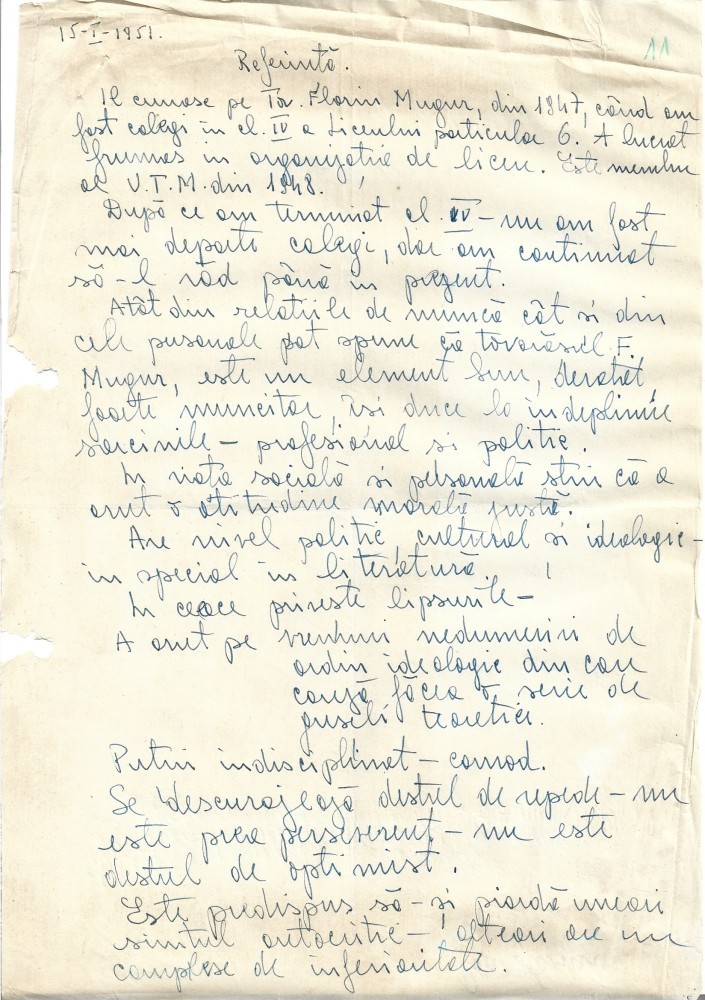 15-I-1951.
11
Referință.
Il cunosc pe Tov. Florin Mugur, din 1947, când am
fost colegi în cl. IV a Liceului particular 6. A lucrat
frumos in organizația de liceu. Este membru
al U.T.M. din 1948.
După ce am terminat cl. IV - nu am fost
mai departe colegi, dar am continuat
să-l văd până in prezent.
Atât din relatiile de muncă cât si din
cele personale pot spune că tovarăsul F.
Mugur, este un element bun, devotat,
foarte muncitor, isi duce la indeplinire
sarcinile - profesional si politic.
In viața socială si personală stiu că a
avut o atitudine morală justă.
Are nivel politic, cultural si ideologic -
in special in literatură.
In ceace priveste lipsurile -
A avut pe vremuri nedumeriri de
ordin ideologic din care
cauză făcea o serie de
greseli teoretice.
Putin indisciplinat - comod.
Se descurajează destul de repede - nu
este prea perseverent - nu este
destul de optimist.
Este predispus să-si piardă uneori
simtul autocritic - alteori are un
complex de inferioritate.